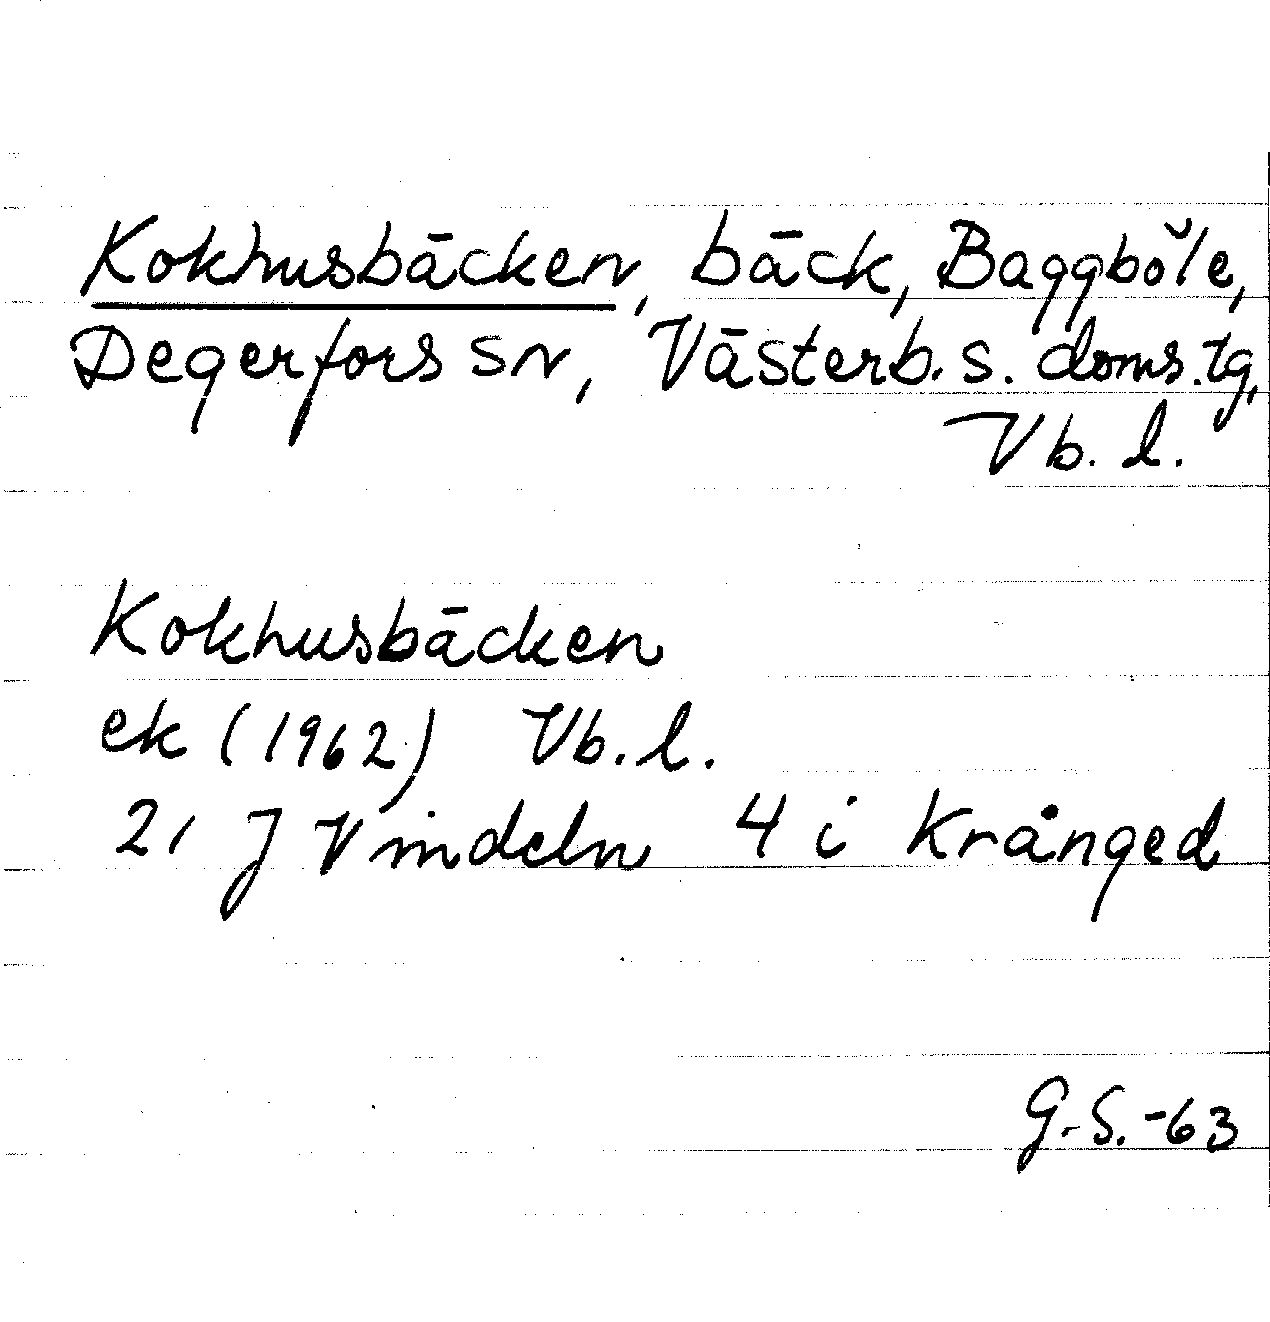 Kokhusbäcken, bäck, Baggböle,
Degerfors sn, Västerb. s. doms. tg,
Vb. l.
Kokhusbäcken
ek (1962) Vb. l.
21 J Vindeln 4 i Krånged
G.S. -63